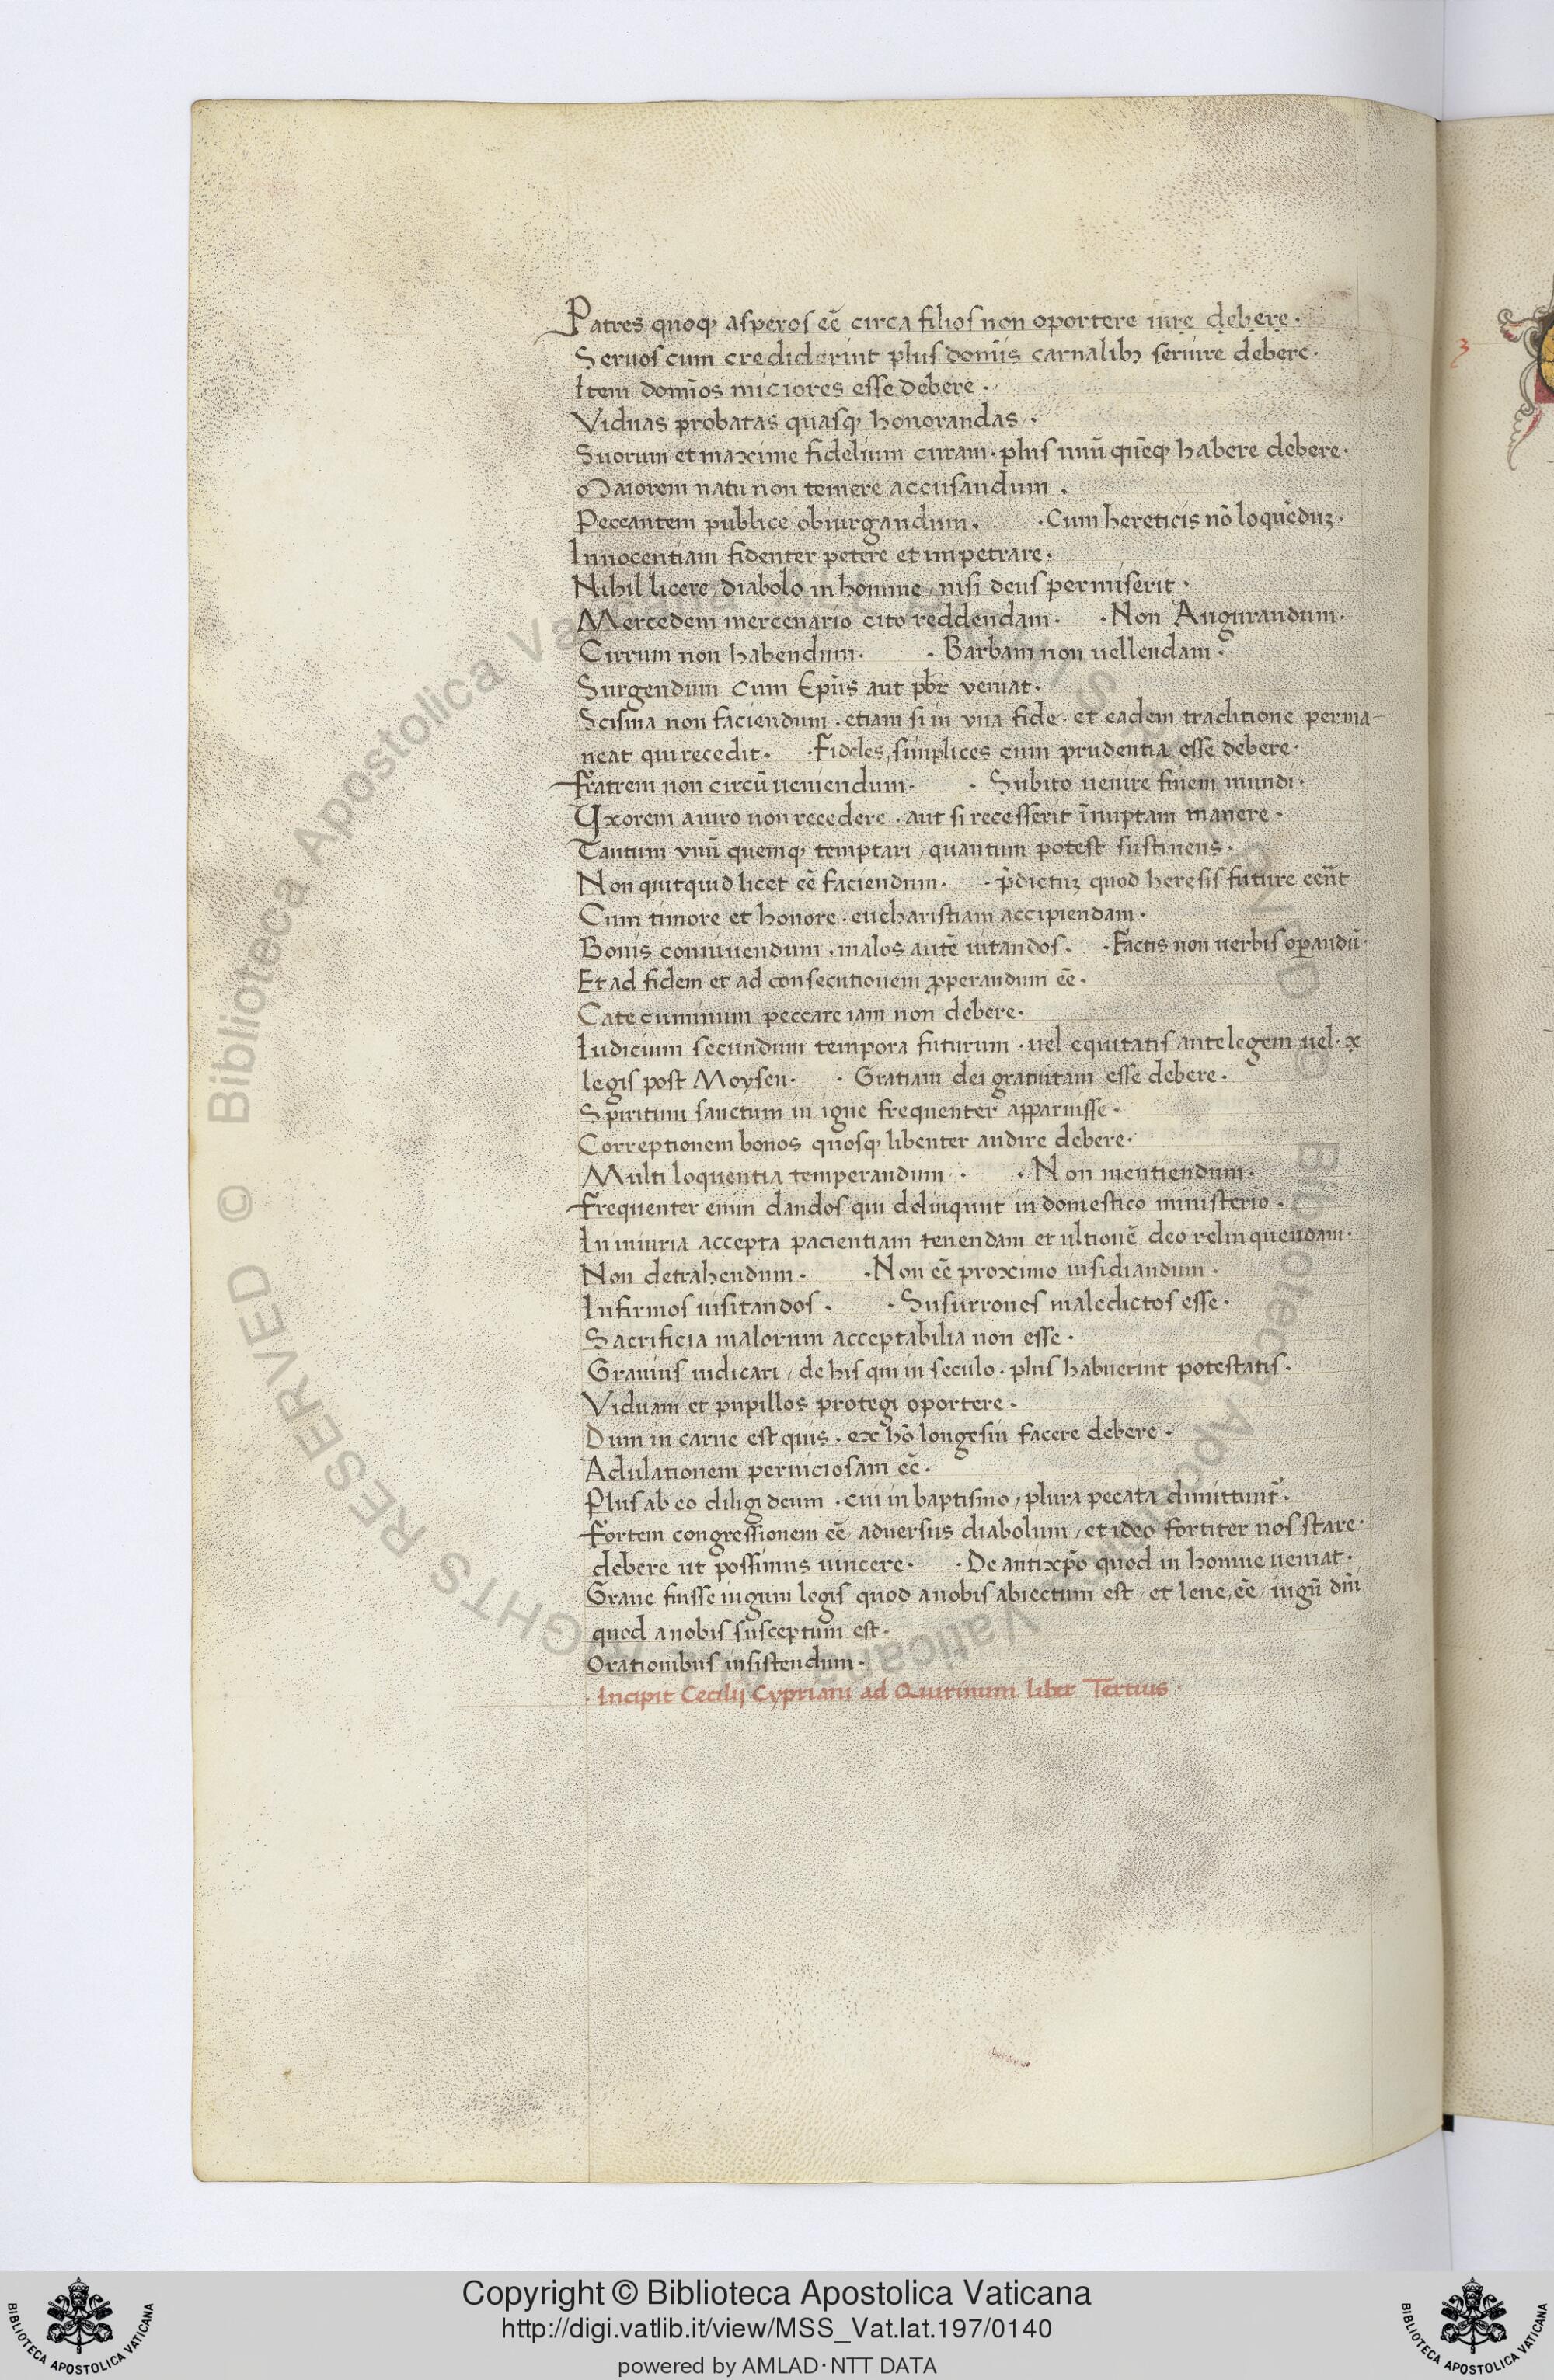 Patres quoqꝫ asperos eē circa filios non oportere iure debere·
Seruos cum crediderint plus domīs carnalibꝫ seruire debere·
Item domīos miciores esse debere·
Viduas probatas quasqꝫ honorandas·
Suorum et maxime fidelium curam· plus unū quēqꝫ habere debere·
Maiorem natu non temere accusandum·
Peccantem publice obiurgandum· ·Cum hereticis nō loquēduꝫ·
Innocentiam fidenter petere et impetrare·
Nihil licere diabolo in homine, nisi deus permiserit·
Mercedem mercenario cito reddendam· ·Non Augurandum·
Cirrum non habendum· ·Barbam non uellendam·
Surgendum cum Ep̄us aut pb̄r veniat·
Scisma non faciendum· etiam si in vna fide· et eadem traditione perma-
neat qui recedit· ·Fideles simplices cum prudentia esse debere·
Fratrem non circū ueniendum· ·Subito uenire finem mundi·
Vxorem a uiro non recedere· aut si recesserit īnuptam manere·
Tantum vnū quemqꝫ temptari, quantum potest sustinens·
Non quitquid licet eē faciendum· ·p̄dictuꝫ quod heresis future eēnt
Cum timore et honore· eucharistiam accipiendam·
Bonis conuiuendum· malos autē uitandos· ·Factis non uerbis operandū·
Et ad fidem et ad consecutionem ꝓperandum eē·
Catecuminum peccare iam non debere·
Iudicium secundum tempora futurum· uel equitatis ante legem uel· x
legis post Moysen· ·Gratiam dei gratuitam esse debere·
Spiritum sanctum in igne frequenter apparuisse·
Correptionem bonos quosqꝫ libenter audire debere·
Multi loquentia temperandum· ·Non mentiendum·
Frequenter enim dandos qui delinqunt in domestico ministerio·
In iniuria accepta pacientiam tenendam et ultionē deo relinquendam·
Non detrahendum· ·Non eē proximo insidiandum·
Infirmos uisitandos· ·Susurrones maledictos esse·
Sacrificia malorum acceptabilia non esse·
Grauius iudicari, de his qui in seculo· plus habuerint potestatis·
Viduam et pupillos protegi oportere·
Dum in carne est quis· ex hō longesin facere debere·
Adulationem perniciosam eē·
Plus ab eo diligi deum· cui in baptismo, plura pecata dimittunt᷑·
Fortem congressionem eē aduersus diabolum, et ideo fortiter nos stare·
debere ut possimus uincere· ·De antixp̄o quod in homine ueniat·
Graue fuisse iugum legis quod a nobis abiectum est, et lene, eē, iugū dn̄i
quod a nobis susceptum est·
Orationibus insistendum·
·Incipit Cecilij Cypriani ad Quirinum liber Tertius·
3
© Biblioteca Apostolica Vaticana ALL RIGHTS RESERVED
Copyright © Biblioteca Apostolica Vaticana
http://digi.vatlib.it/view/MSS_Vat.lat.197/0140
powered by AMLAD·NTT DATA
BIBLIOTECA APOSTOLICA VATICANA
BIBLIOTECA APOSTOLICA VATICANA